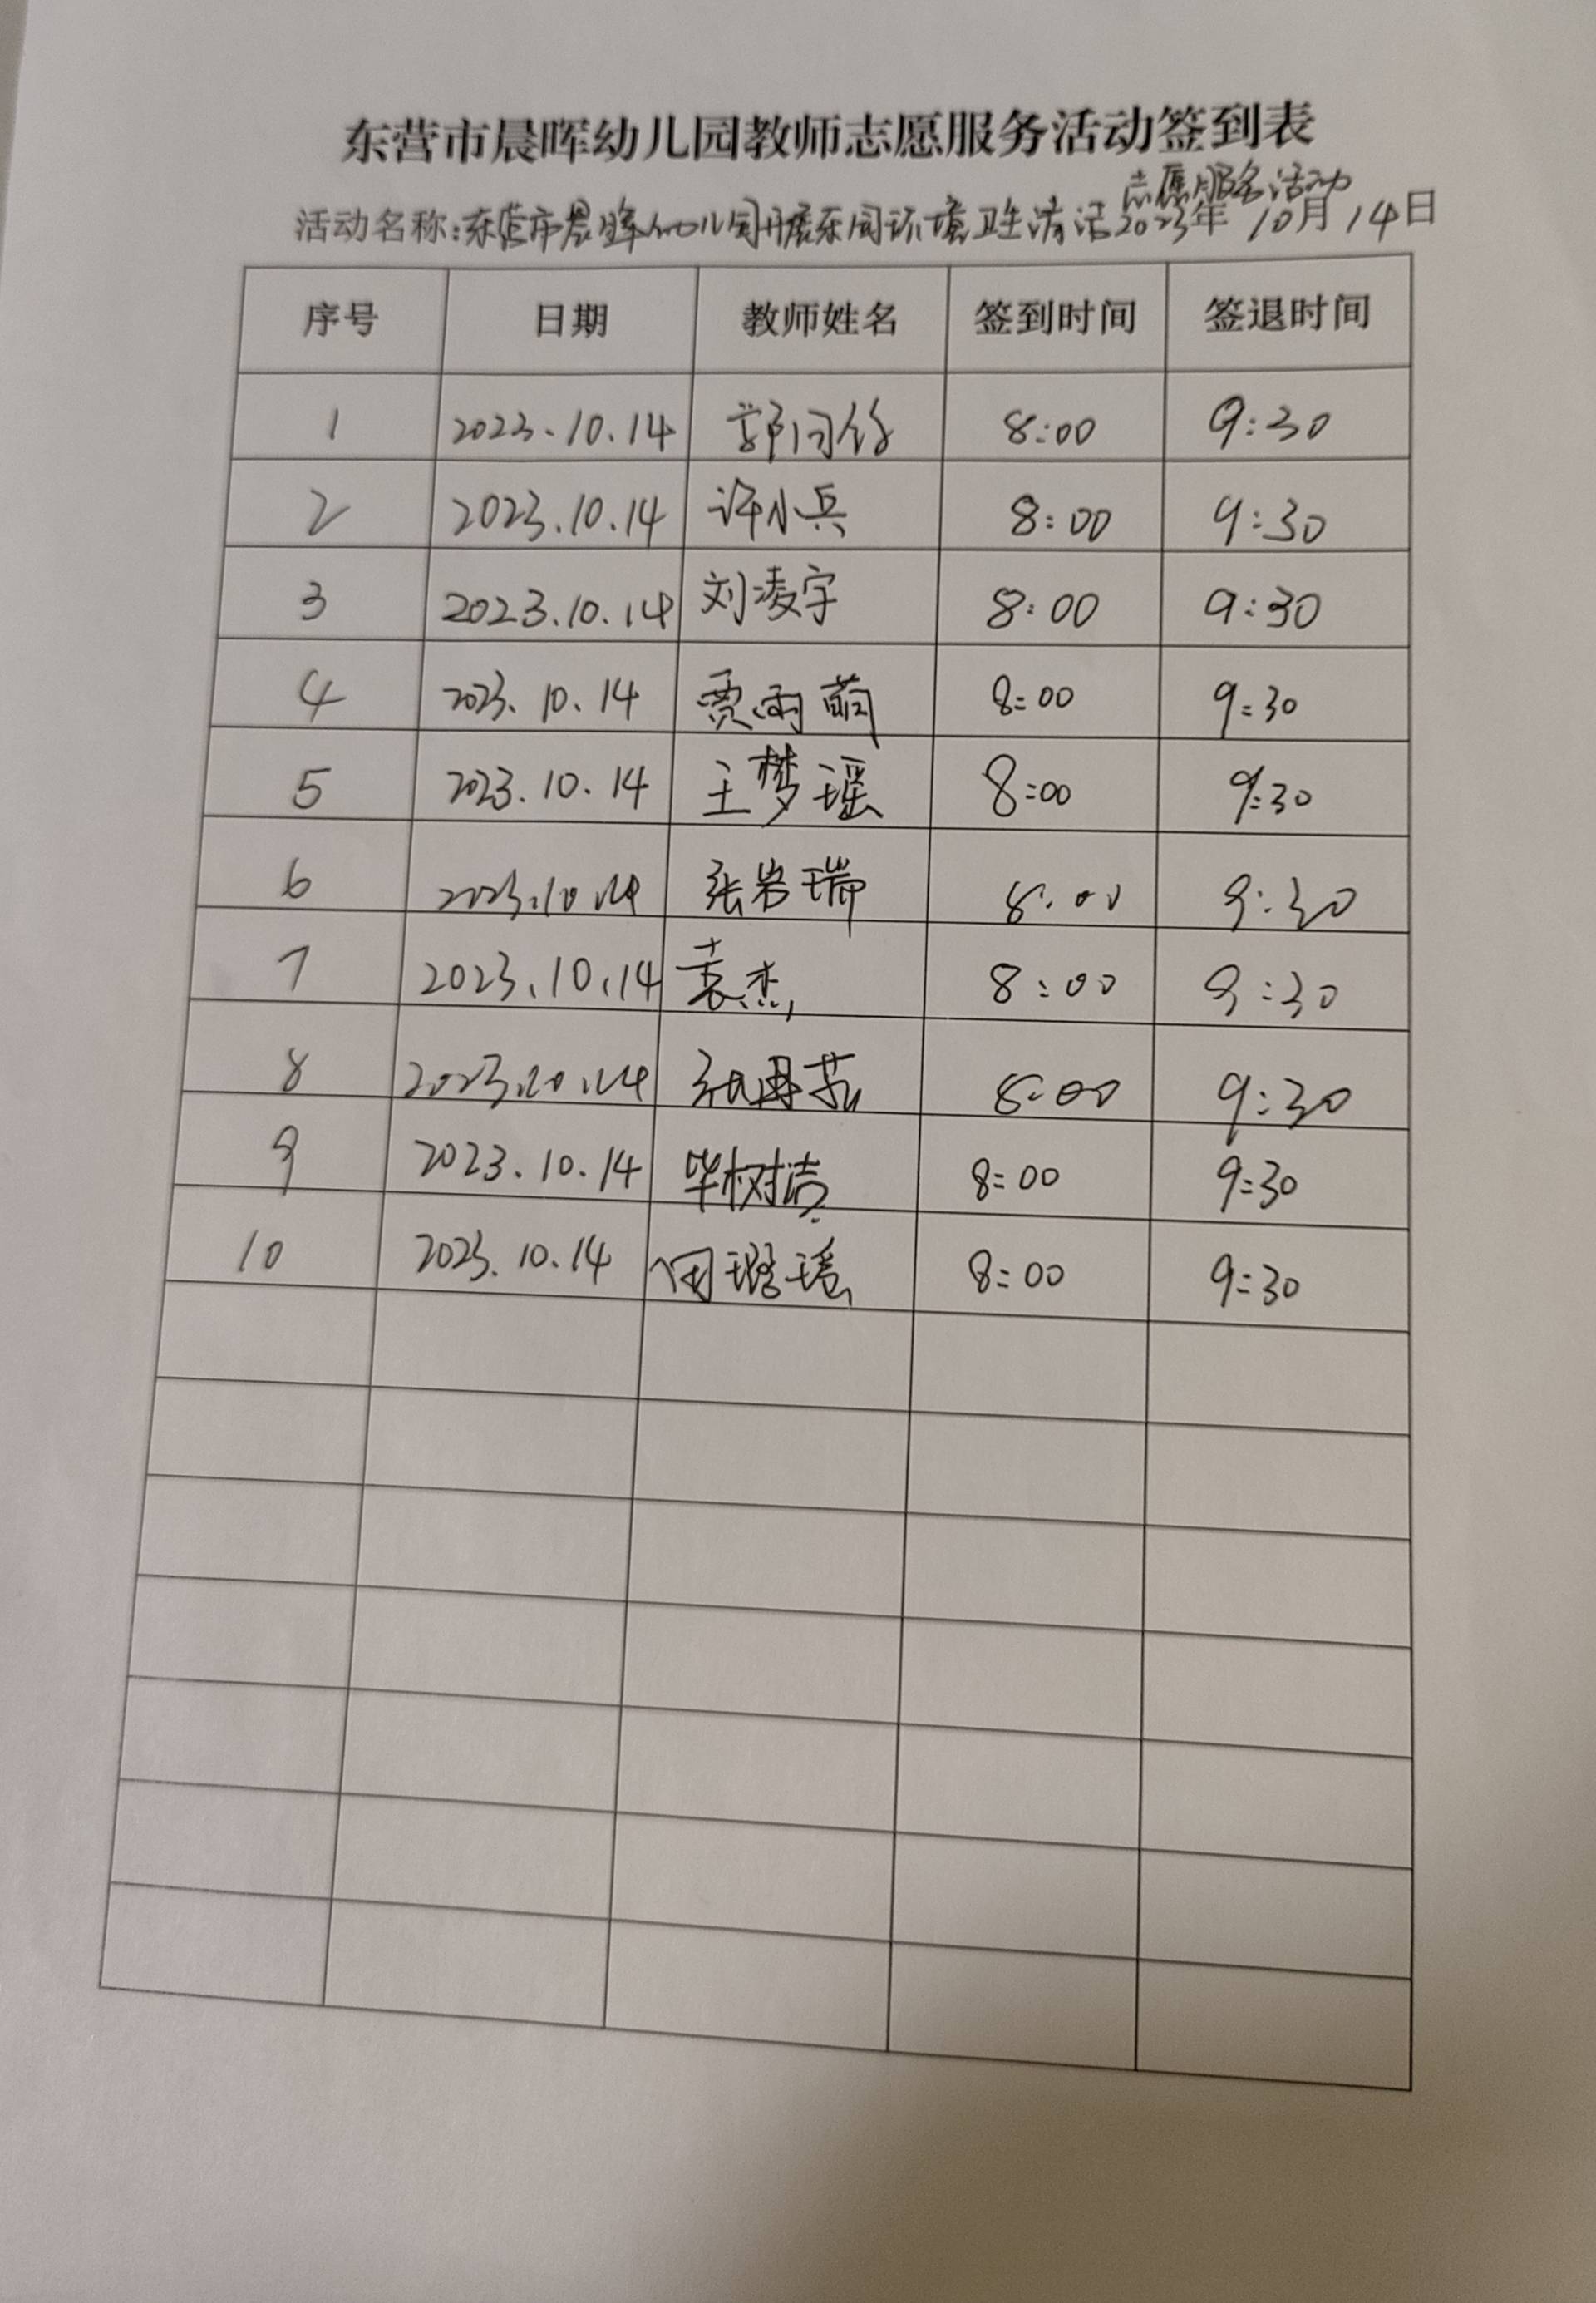 东营市晨晖幼儿园教师志愿服务活动签到表
志愿服务活动
活动名称:东营市晨晖幼儿园开展园环境卫生清洁 2023年 10月 14日
序号 日期 教师姓名 签到时间 签退时间
1 2023.10.14 8:00 9:30
2 2023.10.14 许小兵 8:00 9:30
3 2023.10.14 刘凌宇 8:00 9:30
4 2023.10.14 贾雨萌 8:00 9:30
5 2023.10.14 王梦瑶 8:00 9:30
6 2023.10.14 张岩瑞 8:00 9:30
7 2023.10.14 袁杰 8:00 9:30
8 2023.10.14 8:00 9:30
9 2023.10.14 毕树洁 8:00 9:30
10 2023.10.14 田璐瑶 8:00 9:30